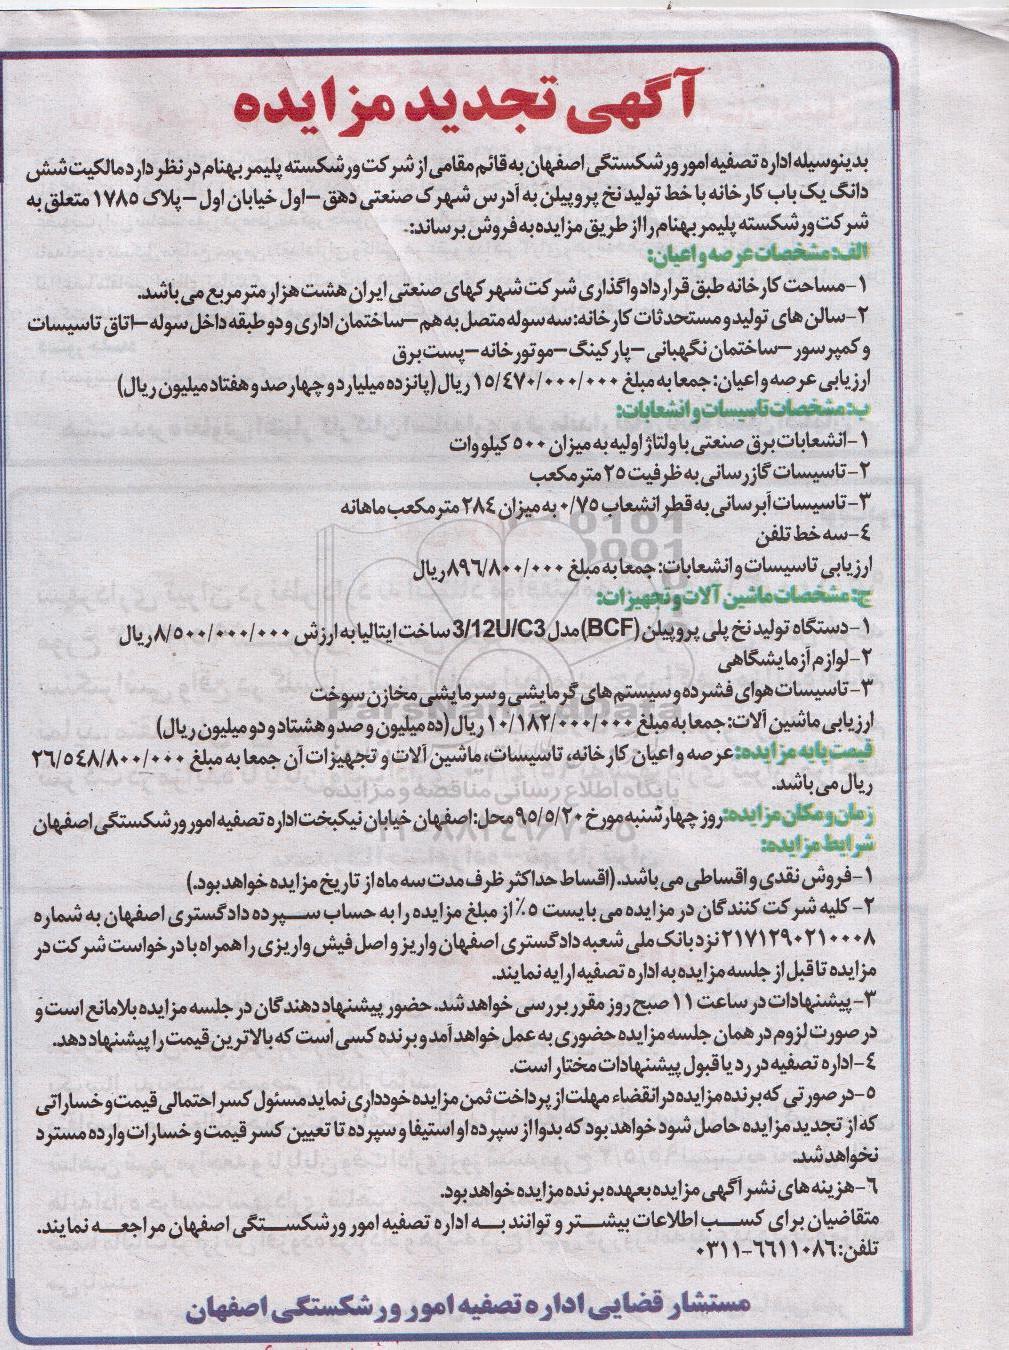 آگهی تجدید مزایده
بدینوسیله اداره تصفیه امور ورشکستگی اصفهان به قائم مقامی از شرکت ورشکسته پلیمر بهنام در نظر دارد مالکیت شش
دانگ یک باب کارخانه با خط تولید نخ پروپیلن به آدرس شهرک صنعتی دهق –اول خیابان اول –پلاک ۱۷۸۵ متعلق به
شرکت ورشکسته پلیمر بهنام را از طریق مزایده به فروش برساند:-
الف: مشخصات عرصه و اعیان:
۱-مساحت کارخانه طبق قرارداد واگذاری شرکت شهرکهای صنعتی ایران هشت هزار مترمربع می باشد.
۲-سالن های تولید و مستحدثات کارخانه: سه سوله متصل به هم –ساختمان اداری و دو طبقه داخل سوله –اتاق تاسیسات
و کمپرسور –ساختمان نگهبانی –پارکینگ –موتورخانه –پست برق
ارزیابی عرصه و اعیان: جمعا به مبلغ ۱۵/۴۷۰/۰۰۰/۰۰۰ ریال (پانزده میلیارد و چهارصد و هفتاد میلیون ریال)
ب: مشخصات تاسیسات و انشعابات:
۱-انشعابات برق صنعتی با ولتاژ اولیه به میزان ۵۰۰ کیلووات
۲-تاسیسات گازرسانی به ظرفیت ۲۵ مترمکعب
۳-تاسیسات آبرسانی به قطر انشعاب ۰/۷۵ به میزان ۲۸۴ مترمکعب ماهانه
۴-سه خط تلفن
ارزیابی تاسیسات و انشعابات: جمعا به مبلغ ۸۹۶/۸۰۰/۰۰۰ ریال
ج: مشخصات ماشین آلات و تجهیزات:
۱-دستگاه تولید نخ پلی پروپیلن (BCF) مدل 3/12U/C3 ساخت ایتالیا به ارزش ۸/۵۰۰/۰۰۰/۰۰۰ ریال
۲-لوازم آزمایشگاهی
۳-تاسیسات هوای فشرده و سیستم های گرمایشی و سرمایشی مخازن سوخت
ارزیابی ماشین آلات: جمعا به مبلغ ۱۰/۱۸۲/۰۰۰/۰۰۰ ریال (ده میلیون و صد و هشتاد و دو میلیون ریال)
قیمت پایه مزایده: عرصه و اعیان کارخانه، تاسیسات، ماشین آلات و تجهیزات آن جمعا به مبلغ ۲۶/۵۴۸/۸۰۰/۰۰۰
ریال می باشد.
زمان و مکان مزایده: روز چهارشنبه مورخ ۹۵/۵/۲۰ محل: اصفهان خیابان نیکبخت اداره تصفیه امور ورشکستگی اصفهان
شرایط مزایده:
۱-فروش نقدی و اقساطی می باشد. (اقساط حداکثر ظرف مدت سه ماه از تاریخ مزایده خواهد بود.)
۲-کلیه شرکت کنندگان در مزایده می بایست ۵٪ از مبلغ مزایده را به حساب سپرده دادگستری اصفهان به شماره
۲۱۷۱۲۹۰۲۱۰۰۰۸ نزد بانک ملی شعبه دادگستری اصفهان واریز و اصل فیش واریزی را همراه با درخواست شرکت در
مزایده تا قبل از جلسه مزایده به اداره تصفیه ارایه نمایند.
۳-پیشنهادات در ساعت ۱۱ صبح روز مقرر بررسی خواهد شد. حضور پیشنهاد دهندگان در جلسه مزایده بلامانع است و
در صورت لزوم در همان جلسه مزایده حضوری به عمل خواهد آمد و برنده کسی است که بالاترین قیمت را پیشنهاد دهد.
۴-اداره تصفیه در رد یا قبول پیشنهادات مختار است.
۵-در صورتی که برنده مزایده در انقضاء مهلت از پرداخت ثمن مزایده خودداری نماید مسئول کسر احتمالی قیمت و خساراتی
که از تجدید مزایده حاصل شود خواهد بود که بدوا از سپرده او استیفا و سپرده تا تعیین کسر قیمت و خسارات وارده مسترد
نخواهد شد.
۶-هزینه های نشر آگهی مزایده بعهده برنده مزایده خواهد بود.
متقاضیان برای کسب اطلاعات بیشتر و توانند به اداره تصفیه امور ورشکستگی اصفهان مراجعه نمایند.
تلفن: ۶۶۱۱۰۸۶-۰۳۱۱
مستشار قضایی اداره تصفیه امور ورشکستگی اصفهان
ParsNamadData
پایگاه اطلاع رسانی مناقصه و مزایده